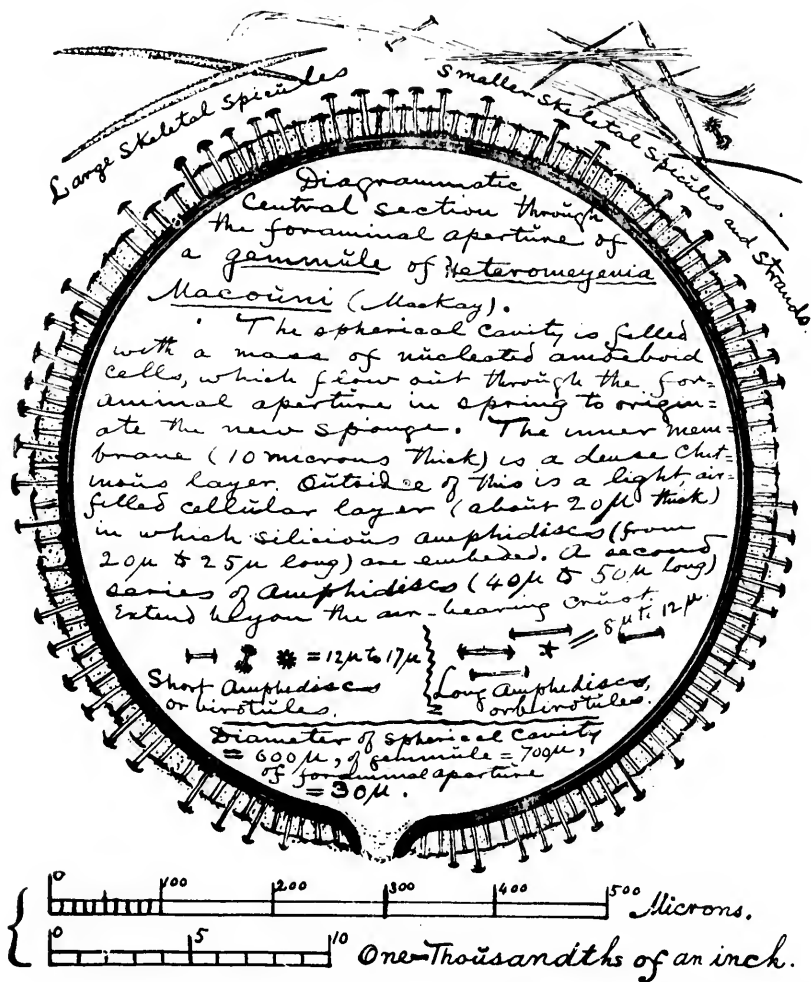 Large Skeletal Spicules
Smaller Skeletal Spicules and Strands.
Diagrammatic
Central section through
the foraminal aperture of
a gemmule of Heteromeyenia
Macouni (MacKay).
The spherical cavity is filled
with a mass of nucleated amoeboid
cells, which flow out through the for=
aminal aperture in spring to origin=
ate the new sponge. The inner mem=
brane (10 microns thick) is a dense chit=
inous layer. Outside of this is a light, air=
filled cellular layer (about 20µ thick)
in which silicious amphidiscs (from
20µ to 25µ long) are embeded. A second
series of Amphidiscs (40µ to 50µ long)
Extend beyon the air-bearing crust.
= 12µ to 17µ
= 8µ to 12µ.
Short Amphediscs
or birotules.
Long Amphediscs,
or birotules.
Diameter of spherical cavity
= 600µ, of gemmule = 700µ,
of foraminal aperture
= 30µ.
0 100 200 300 400 500 Microns.
0 5 10 One-Thousandths of an inch.